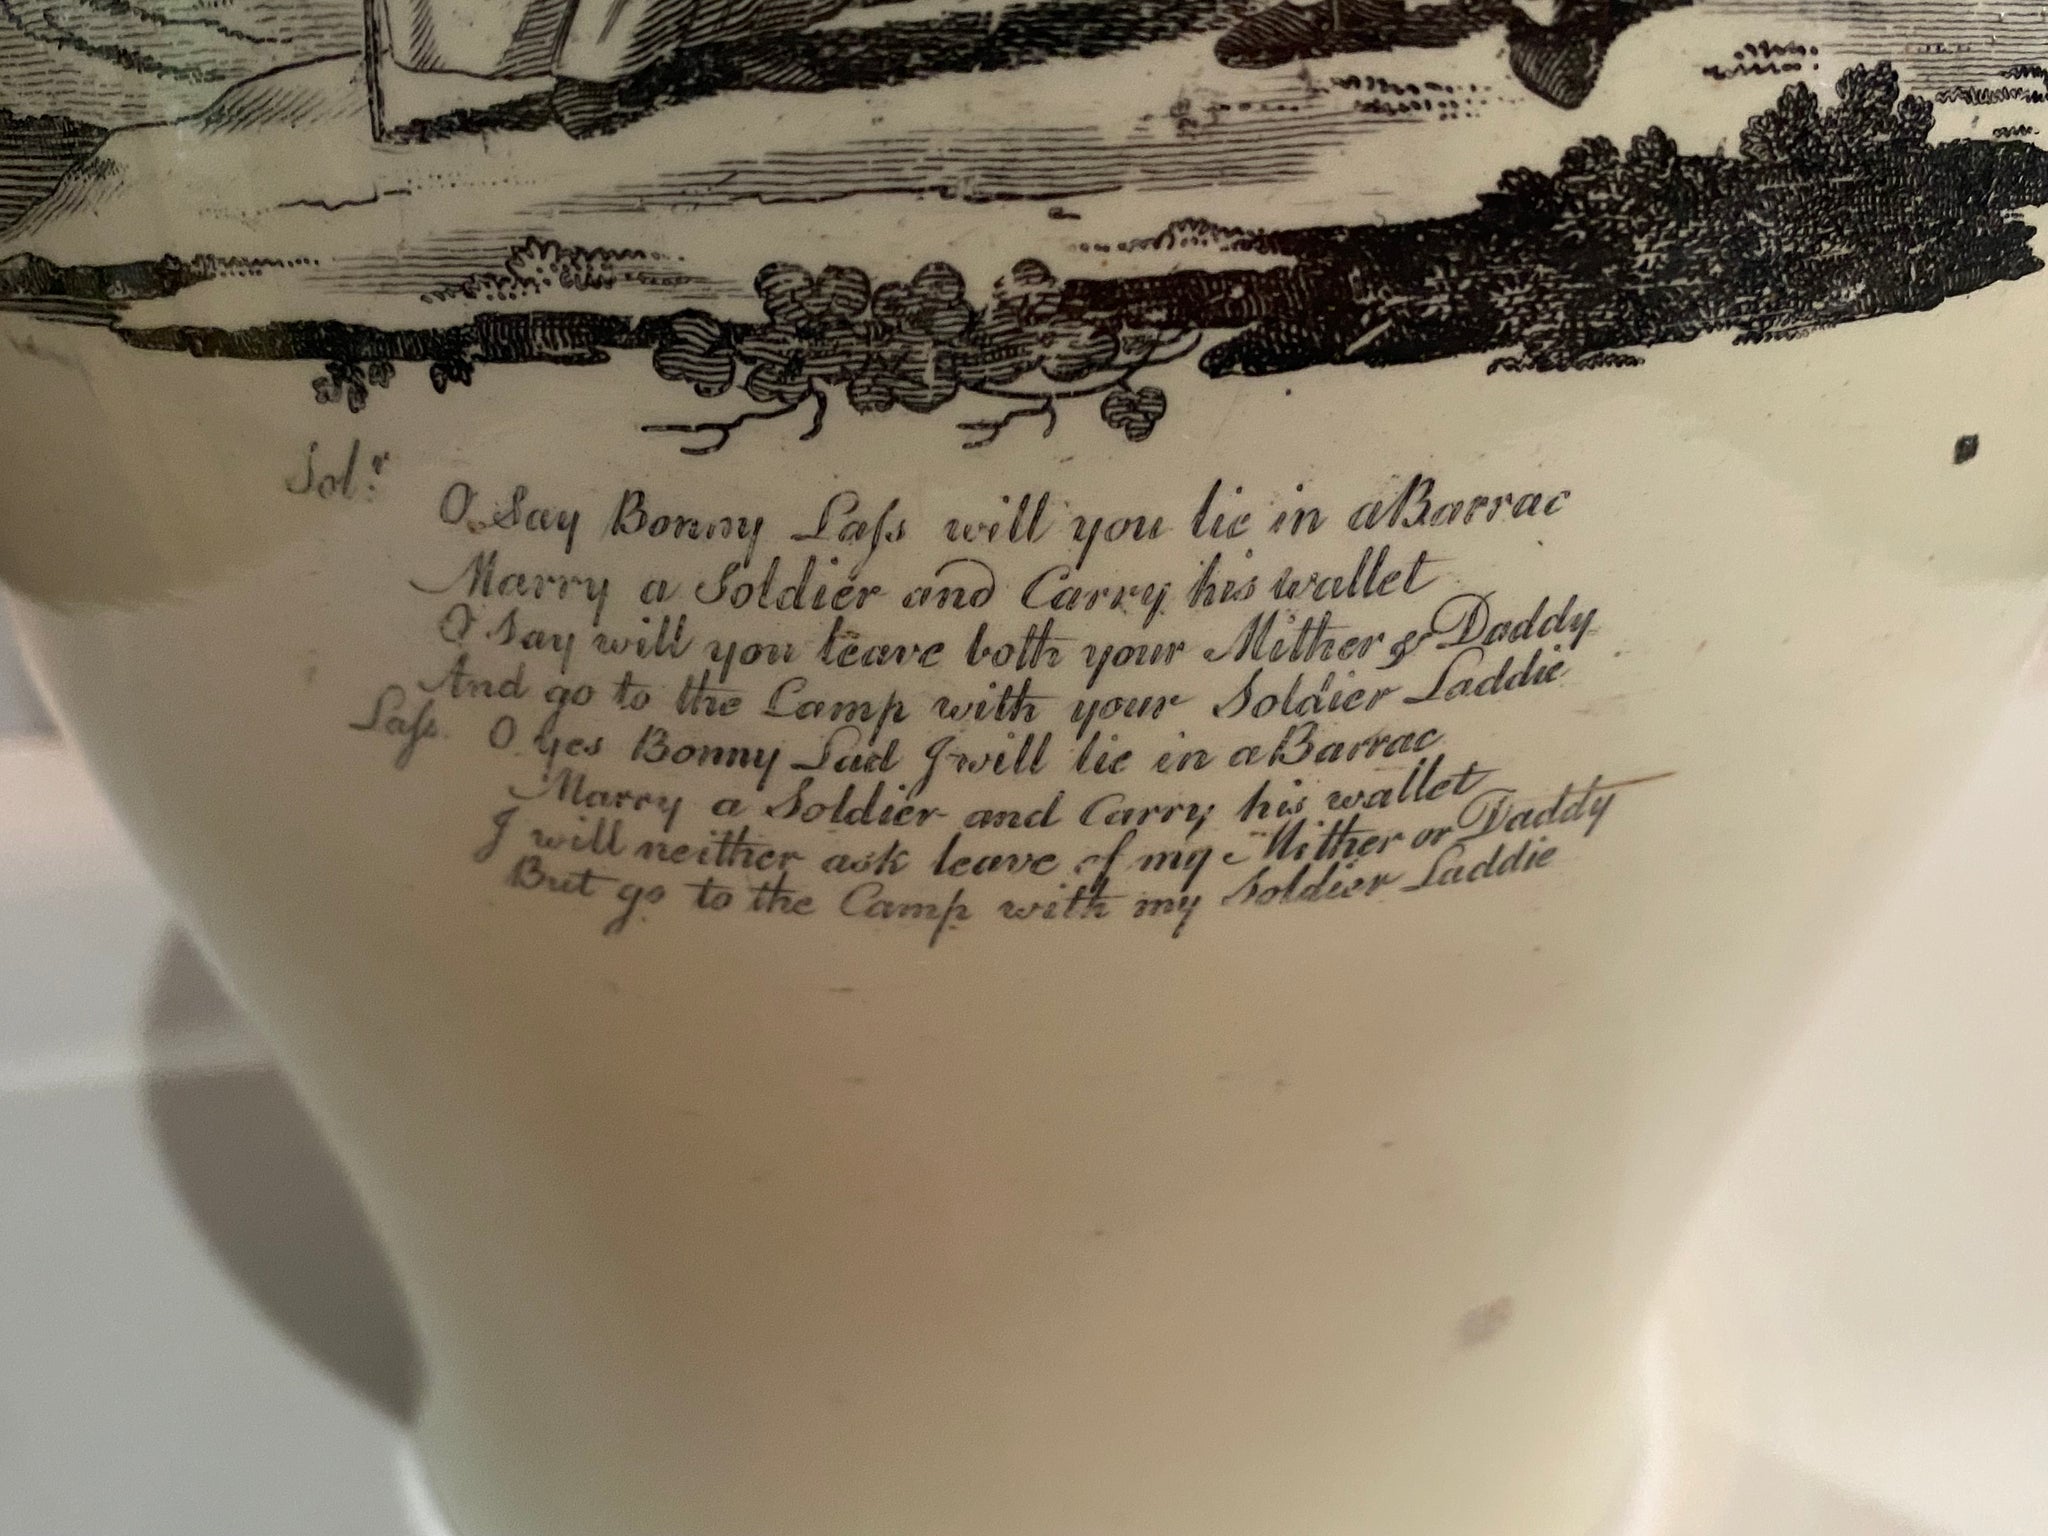 Solr: O Say Bonny Laſs will you lie in a Barrac
Marry a Soldier and Carry his wallet
O Say will you leave both your Mither & Daddy
And go to the Camp with your Soldier Laddie
Laſs. O yes Bonny Lad I will lie in a Barrac
Marry a Soldier and Carry his wallet
I will neither ask leave of my Mither or Daddy
But go to the Camp with my Soldier Laddie